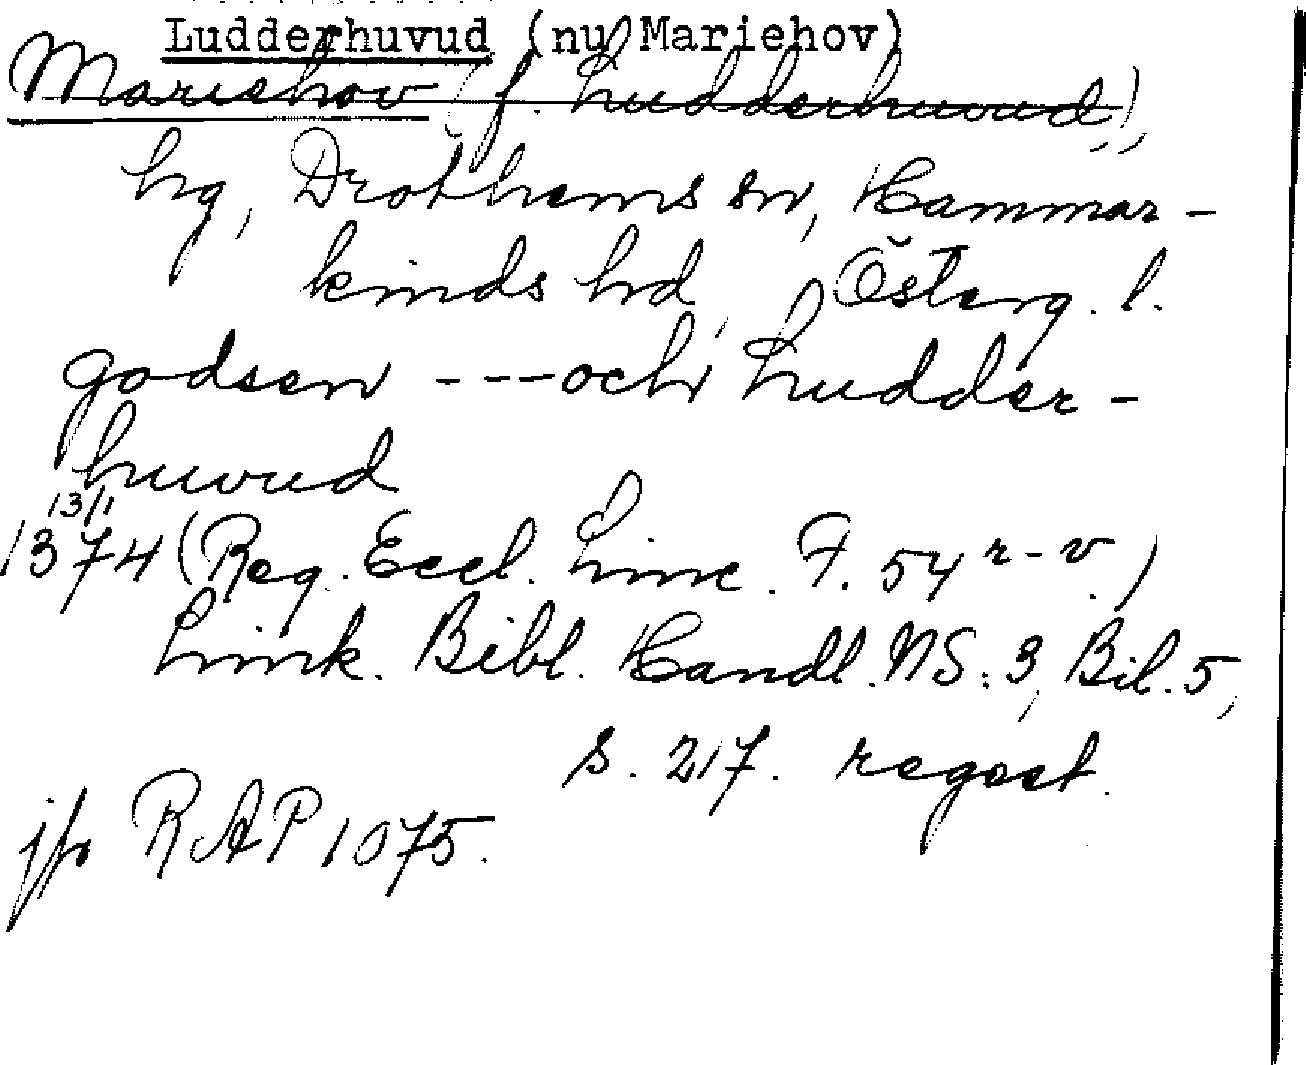 Ludderhuvud (nu Mariehov)
Mariehov (f. Ludderhuvud),
hg, Drothems sn, Hammar-
kinds hd, Österg. l.
godsen ---och Ludder-
huvud
13/11
1374 (Reg. Eccl. Linc. F. 54 r-v.)
Link. Bibl. Handl. NS: 3, Bil. 5,
s. 217. regest.
jfr RAP 1075.